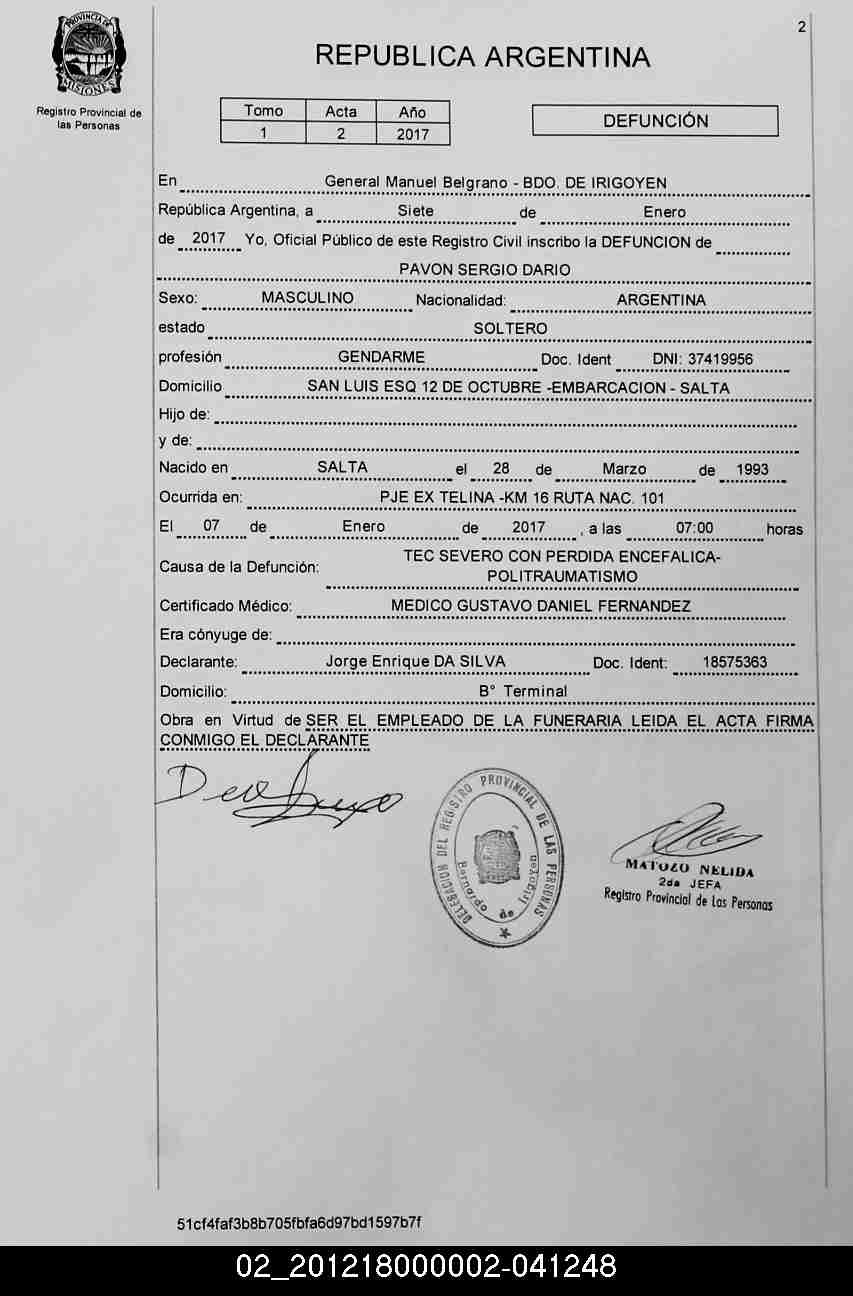 PROVINCIA DE
MISIONES
Registro Provincial de
las Personas
2
REPUBLICA ARGENTINA
Tomo Acta Año
1 2 2017
DEFUNCIÓN
En General Manuel Belgrano - BDO. DE IRIGOYEN
República Argentina, a Siete de Enero
de 2017 Yo, Oficial Público de este Registro Civil inscribo la DEFUNCION de
PAVON SERGIO DARIO
Sexo: MASCULINO Nacionalidad: ARGENTINA
estado SOLTERO
profesión GENDARME Doc. Ident DNI: 37419956
Domicilio SAN LUIS ESQ 12 DE OCTUBRE -EMBARCACION - SALTA
Hijo de:
y de:
Nacido en SALTA el 28 de Marzo de 1993
Ocurrida en: PJE EX TELINA -KM 16 RUTA NAC. 101
El 07 de Enero de 2017 , a las 07:00 horas
Causa de la Defunción: TEC SEVERO CON PERDIDA ENCEFALICA-
POLITRAUMATISMO
Certificado Médico: MEDICO GUSTAVO DANIEL FERNANDEZ
Era cónyuge de:
Declarante: Jorge Enrique DA SILVA Doc. Ident: 18575363
Domicilio: B° Terminal
Obra en Virtud de SER EL EMPLEADO DE LA FUNERARIA LEIDA EL ACTA FIRMA
CONMIGO EL DECLARANTE
DELEGACION DEL REGISTRO PROVINCIAL DE LAS PERSONAS
Bernardo de Irigoyen
MATOZO NELIDA
2da JEFA
Registro Provincial de Las Personas
51cf4faf3b8b705fbfa6d97bd1597b7f
02_201218000002-041248